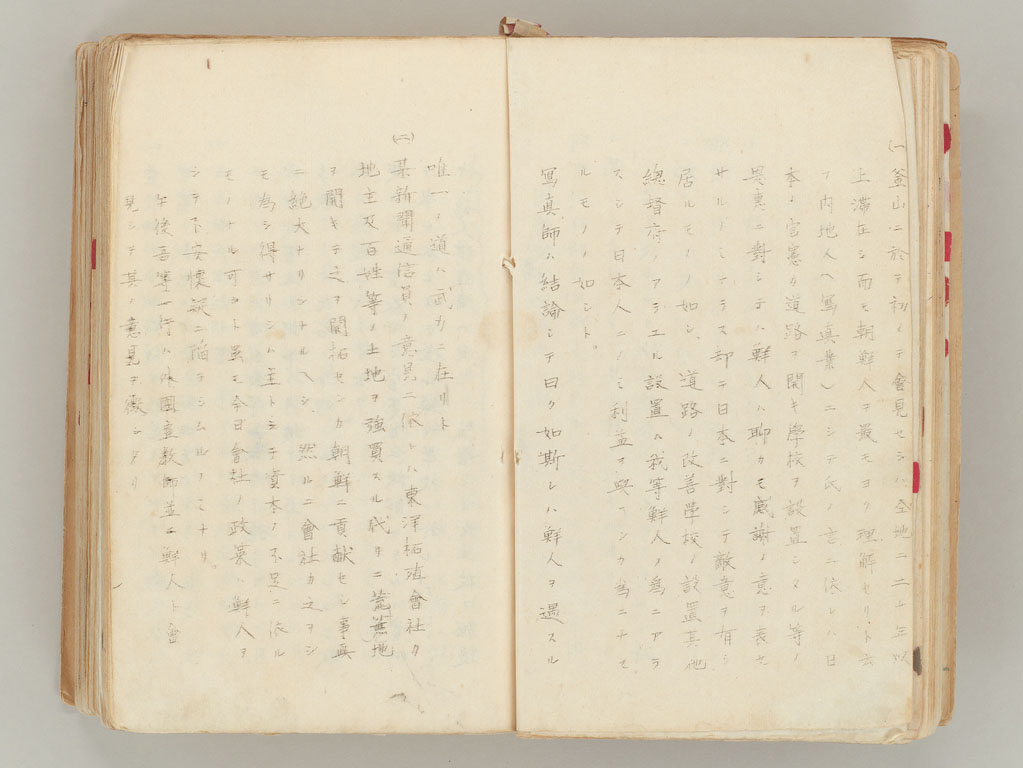 (一)釜山ニ於テ初メテ會見セシハ仝地ニ二十年以
上滞在シ而モ朝鮮人ヲ最モヨク理解セリト云
フ内地人(寫真業)ニシテ氏ノ言ニ依レハ日
本ノ官憲カ道路ヲ開キ學校ヲ設置シタル等ノ
恩惠ニ對シテハ鮮人ハ聊カモ感謝ノ意ヲ表セ
サルノミナラス却ニ日本ニ對シテ敵意ヲ有シ
居ルモノノ如シ、道路ノ改善學校ノ設置其他
總督府ノアラユル設置ハ我等鮮人ノ為ニアラ
スシテ日本人ニノミ利益ヲ與ヘンカ為ニナセ
ルモノノ如シト
寫真師ハ結論シテ曰ク如斯シハ鮮人ヲ遇スル
唯一ノ道ハ武力ニ在リト
(二)某新聞通信員ノ意見ニ依レハ東洋拓殖會社カ
地主及百姓等ノ土地ヲ強買スル代リニ荒蕪地
ヲ開キテ之ヲ開拓センカ朝鮮ニ貢献セシ事真
ニ絶大ナリシナルヘシ 然ルニ會社カ之ヲシ
モ為シ得サリシハ主トシテ資本ノ不足ニ依ル
モノナル可シト虽モ今日會社ノ政策ハ鮮人ヲ
シテ不安懐疑ニ陥ラシムルノミナリ
午後吾等一行ハ休園直教師並ニ鮮人ト會
見シテ其ノ意見ヲ徴シタリ